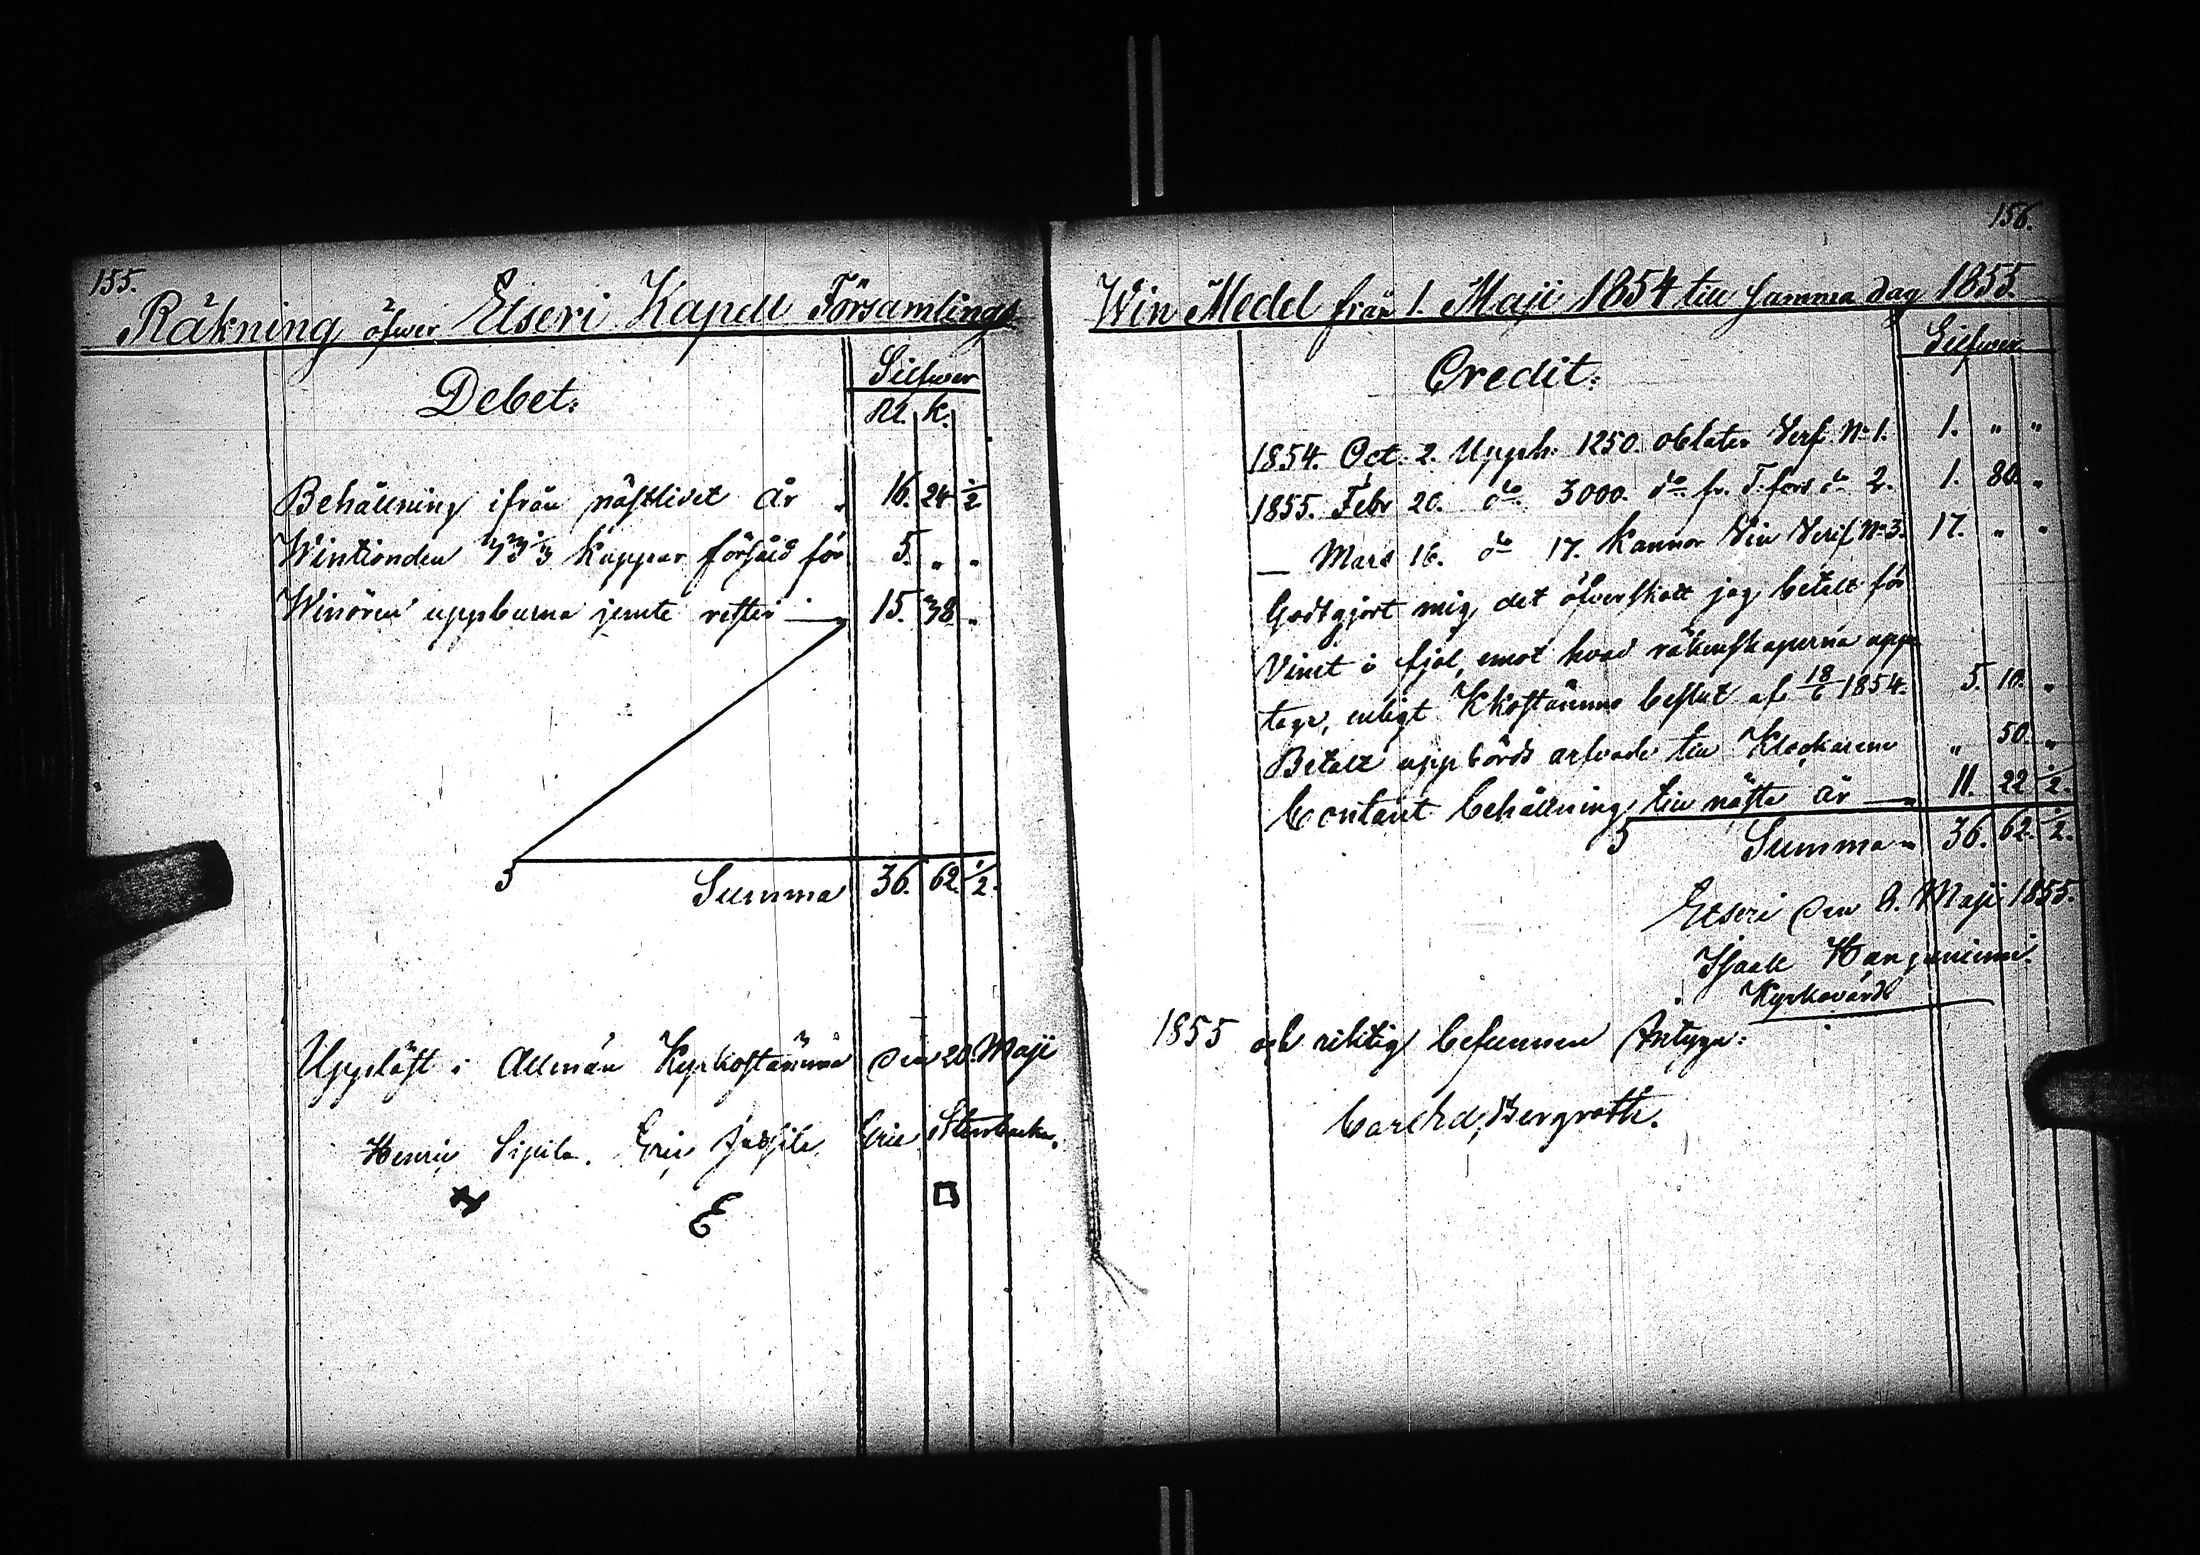 155.
Räkning öfwer Etseri Kapell Församlings
Debet:
Silfwer
Rl. k.
Behållning ifrån nästlidet år " 16. 24 1/2
Wintionden 33 1/3 kappar försåld för 5. " "
Winören uppburna jemte rester — " 15. 38 "
Summa 36. 62. 1/2.
Uppläst i Allmän Kyrkostämma den 20. Maji
Henric Sipilä. Eric Eric Stenbacka.
E
156.
Win Medel från 1. Maji 1854 till samma dag 1855.
Credit:
Silfwer
1854. Oct. 2. Upph. 1250 oblater Verf. No 1. 1. " "
1855. Febr 20. do 3000. do fr. T.fors do 2. 1. 80. "
— Mars 16. do 17. kannor Vin Verif. No 3. 17. " "
Godtgjort mig, det öfverskott jag betalt för
Vinet i fjol, emot hvad räkenskaperna upp-
tage, enligt Kkostämmo beslut af 18/6 1854. 5. 10. "
Betalt uppbörds arfvode till Klockarene " 50. "
Contant behållning till nästa år — " 11. 22 1/2.
Summa " 36. 62. 1/2.
Etseri den 8. Maji 1855.
Isaak Hanganiemi.
Kyrkovärd
1855 och riktig befunnen betyga:
Carl Ad. Bergroth.